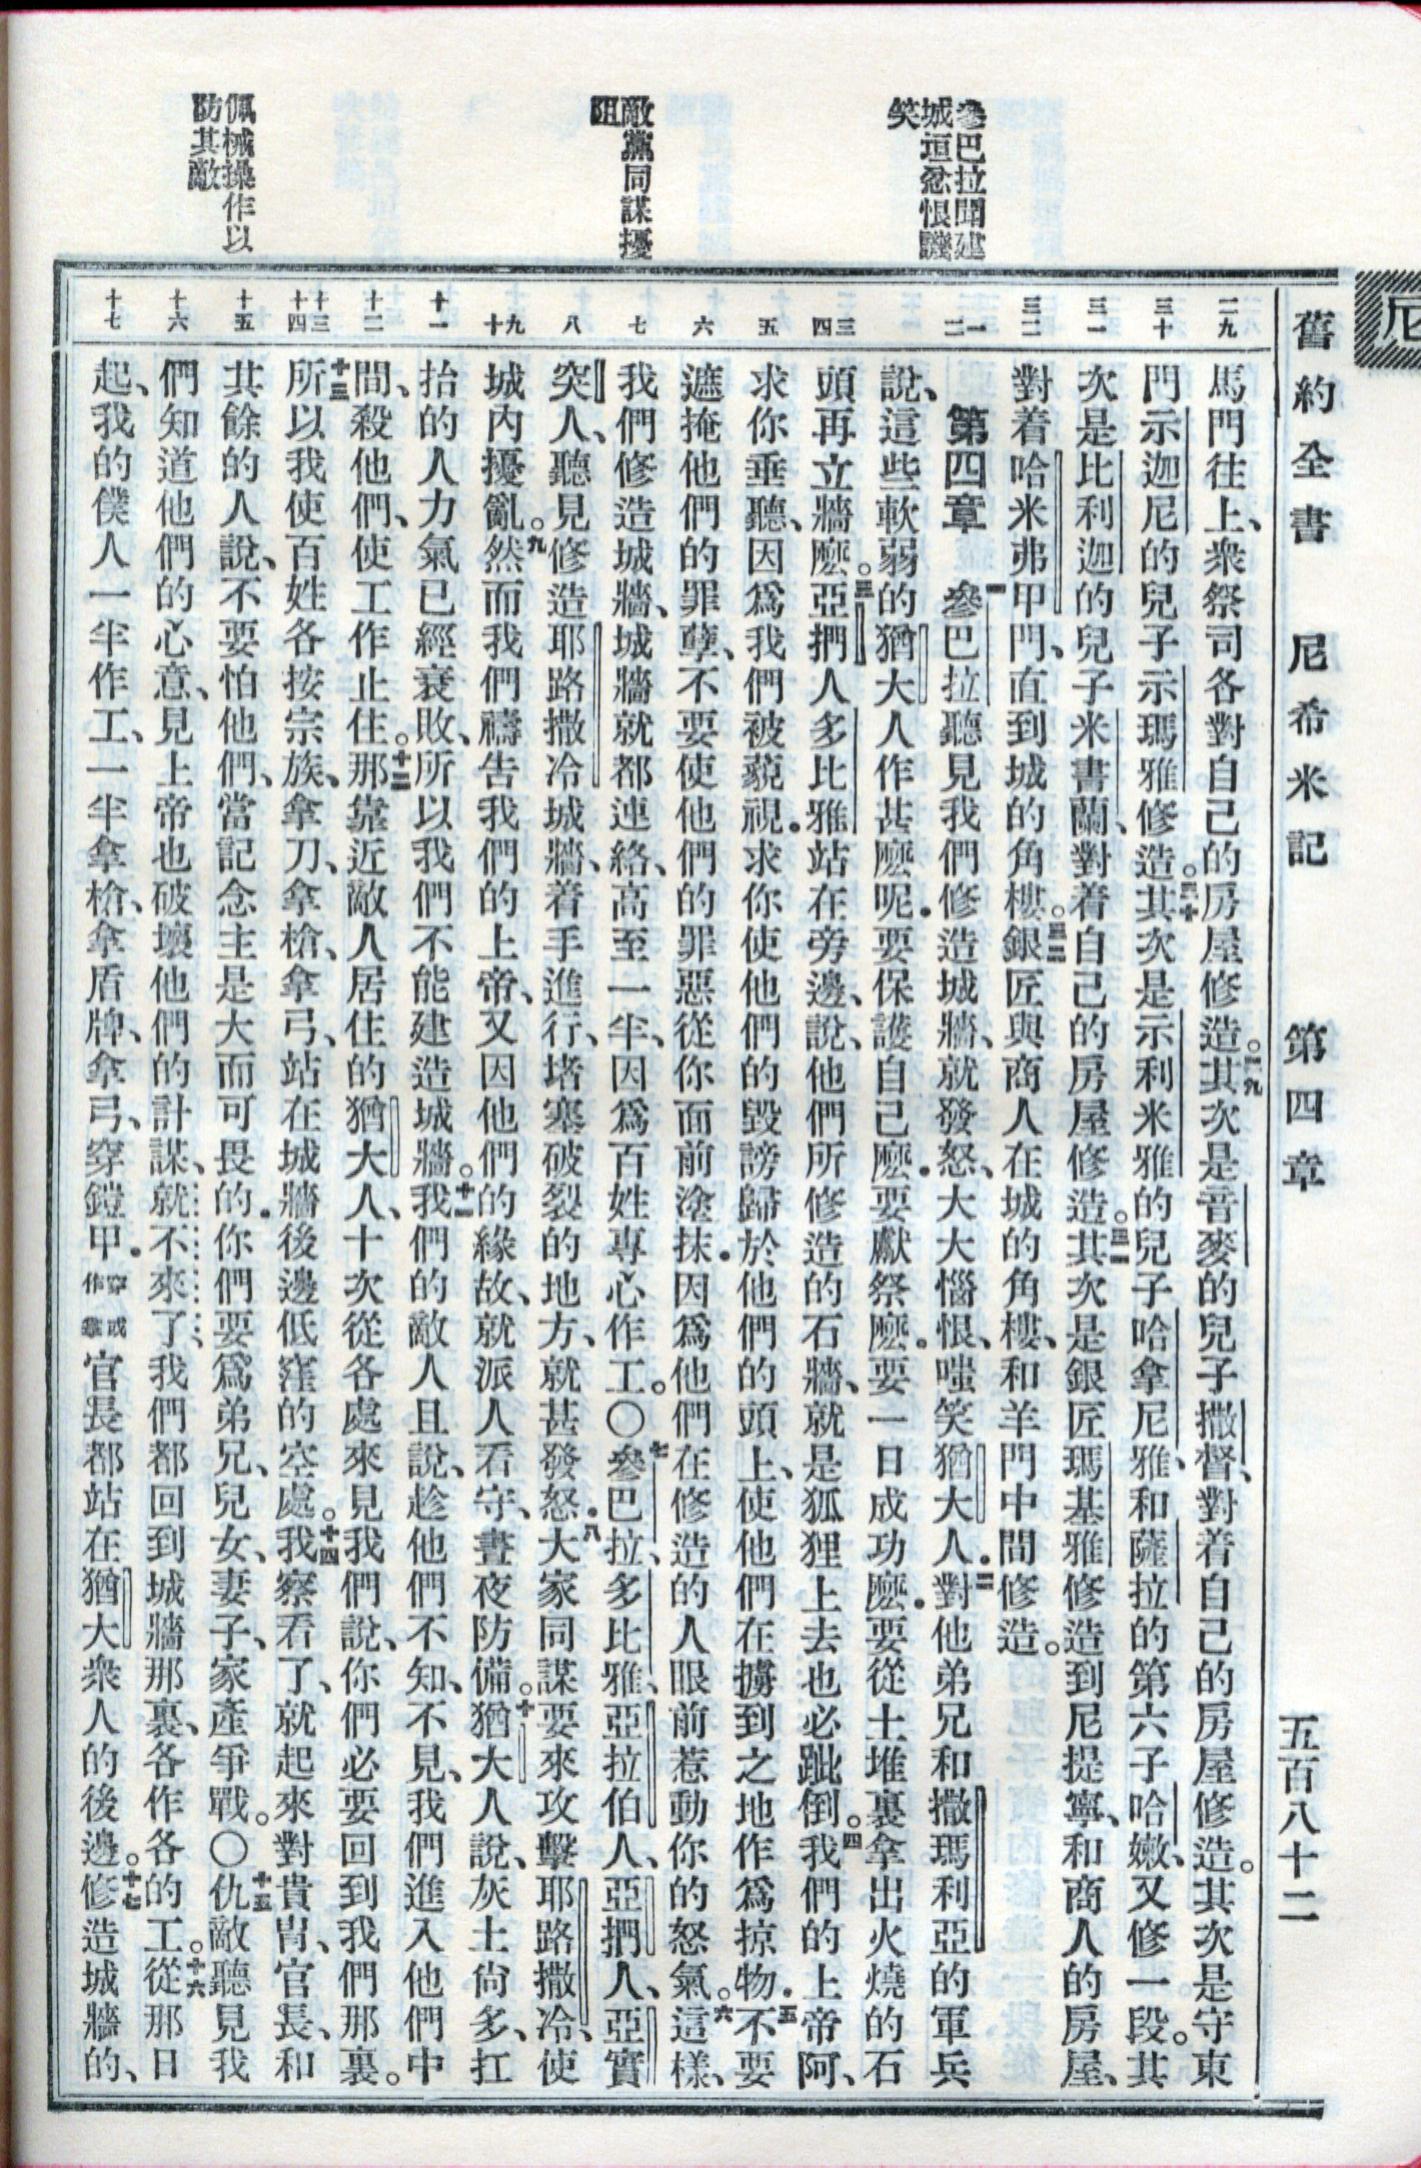 尼
舊約全書 尼希米記 第四章 五百八十二
參巴拉聞建
城垣忿恨譏
笑
敵黨同謀擾
阻
佩械操作以
防其敵
二九 三十 三一 三二 一 二 三 四 五 六 七 八 九 十 十一 十二 十三 十四 十五 十六 十七
馬門往上、衆祭司各對自己的房屋修造。二九其次是音麥的兒子撒督、對着自己的房屋修造。其次是守東
門示迦尼的兒子示瑪雅修造。三十其次是示利米雅的兒子哈拿尼雅、和薩拉的第六子哈嫩、又修一段。其
次是比利迦的兒子米書蘭、對着自己的房屋修造。三一其次是銀匠瑪基雅修造到尼提寧、和商人的房屋、
對着哈米弗甲門、直到城的角樓。三二銀匠與商人在城的角樓、和羊門中間修造。
第四章 一參巴拉聽見我們修造城牆、就發怒、大大惱恨、嗤笑猶大人．二對他弟兄和撒瑪利亞的軍兵
說、這些軟弱的猶大人作甚麼呢．要保護自己麼．要獻祭麼．要一日成功麼．要從土堆裏拿出火燒的石
頭再立牆麼。三亞捫人多比雅站在旁邊、說、他們所修造的石牆、就是狐狸上去也必跐倒。四我們的上帝阿、
求你垂聽、因爲我們被藐視．求你使他們的毀謗歸於他們的頭上、使他們在擄到之地作爲掠物．五不要
遮掩他們的罪孽、不要使他們的罪惡從你面前塗抹．因爲他們在修造的人眼前惹動你的怒氣。六這樣、
我們修造城牆、城牆就都連絡、高至一半、因爲百姓專心作工。〇七參巴拉、多比雅、亞拉伯人、亞捫人、亞實
突人、聽見修造耶路撒冷城牆、着手進行、堵塞破裂的地方、就甚發怒．八大家同謀要來攻擊耶路撒冷、使
城內擾亂。九然而我們禱告我們的上帝、又因他們的緣故、就派人看守、晝夜防備。十猶大人說、灰土尙多、扛
抬的人力氣已經衰敗、所以我們不能建造城牆。十一我們的敵人且說、趁他們不知、不見、我們進入他們中
間、殺他們、使工作止住。十二那靠近敵人居住的猶大人、十次從各處來見我們說、你們必要回到我們那裏。
十三所以我使百姓各按宗族、拿刀、拿槍、拿弓、站在城牆後邊低窪的空處。十四我察看了、就起來對貴冑、官長、和
其餘的人說、不要怕他們、當記念主是大而可畏的．你們要爲弟兄、兒女、妻子、家產爭戰。〇十五仇敵聽見我
們知道他們的心意、見上帝也破壞他們的計謀、就不來了、我們都回到城牆那裏、各作各的工。十六從那日
起、我的僕人一半作工、一半拿槍、拿盾牌、拿弓、穿鎧甲．官長都站在猶大衆人的後邊。十七修造城牆的、